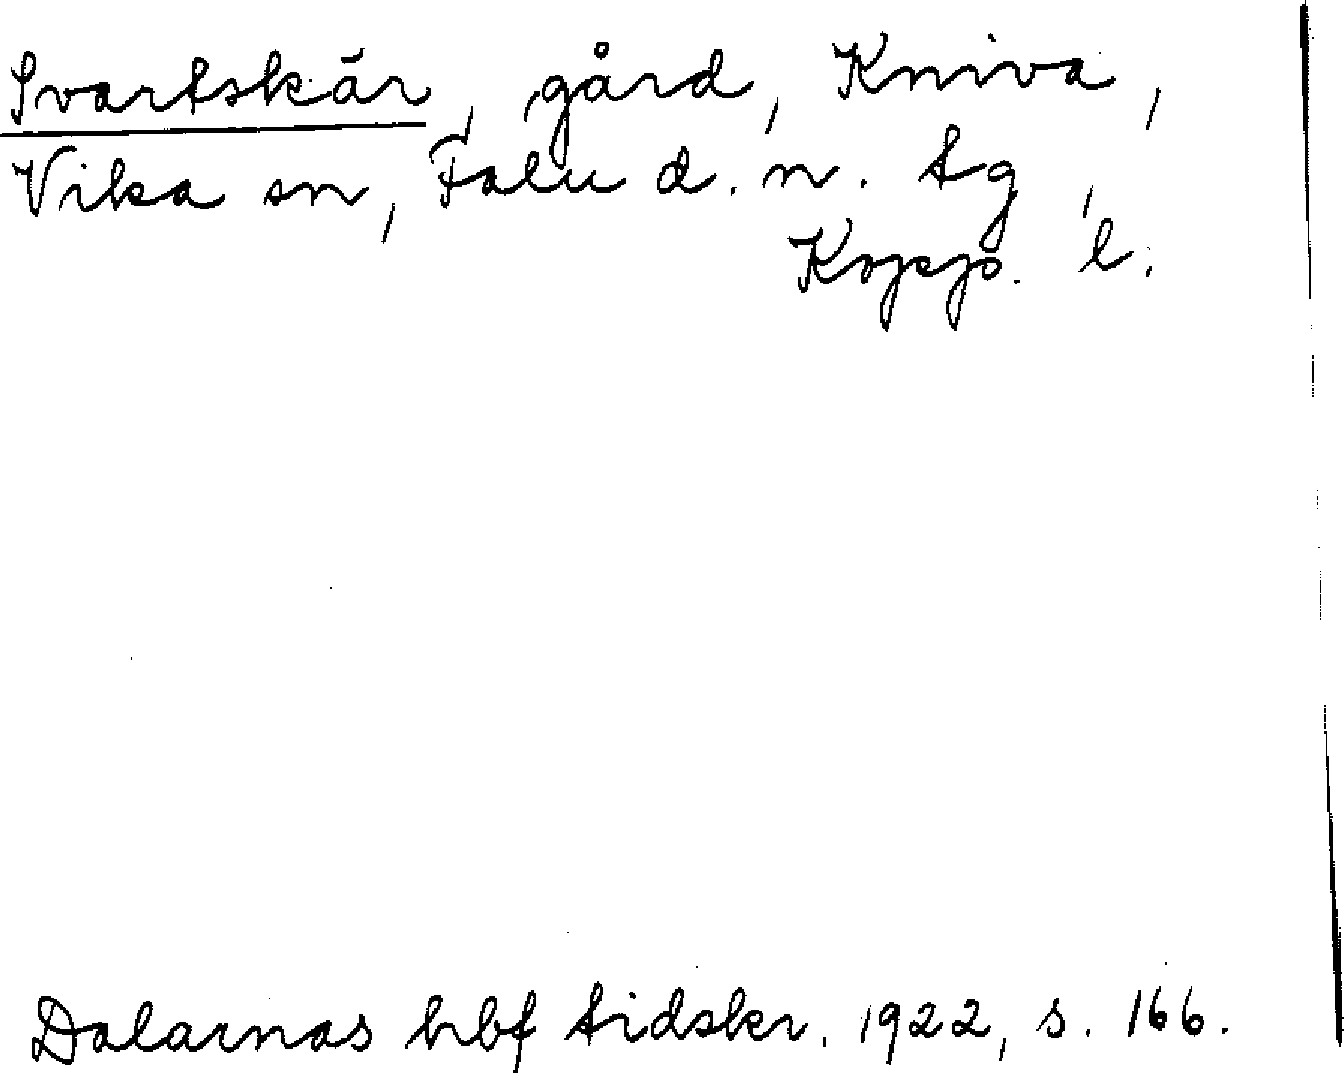 Svartskär, gård, Kniva,
Vika sn, Falu d. n. tg,
Kopp. l.
Dalarnas hbf tidskr. 1922, s. 166.